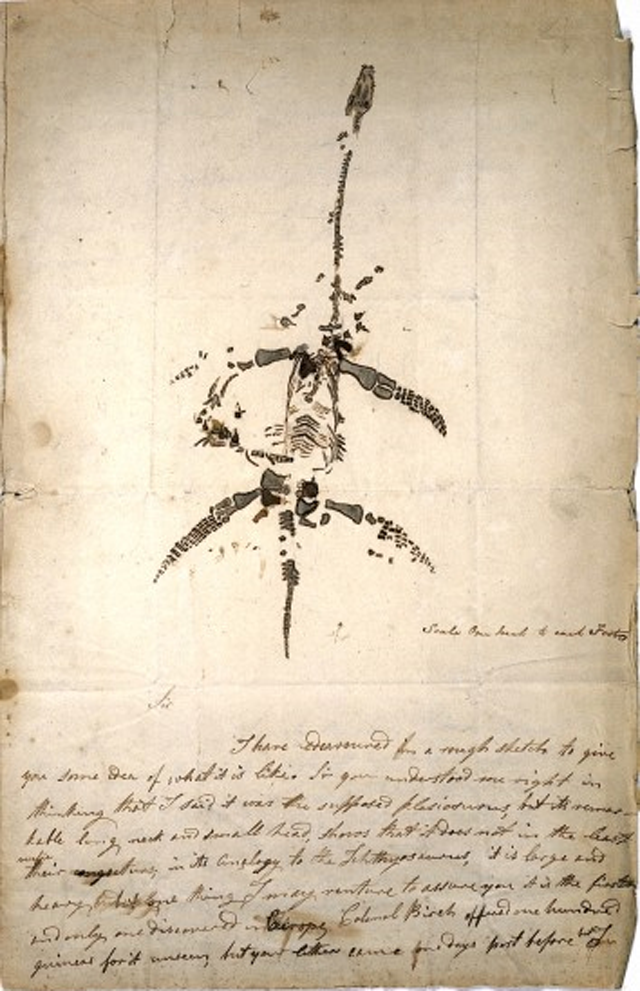 Scale One Inch to each Foot
Sir
I have endeavoured for a rough sketch to give
you some idea of what it is like. Sir you understood me right in
thinking that I said it was the supposed plesiosurus, but its remar-
kable long neck and small head, shows that it does not in the least
verify
their in its Analogy to the Ichthyosaurus, it is large and
heavy but one thing I may venture to assure you it is the first
and only one discovered in Europe, Colonel Birch offered one hundred
guineas for it unseen, but your letter came one days post before